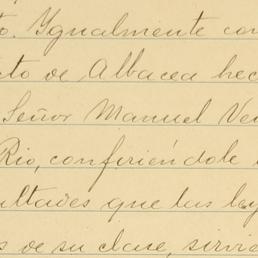 to. Igualmente con
cto de Albacea hec
Señor Manuel Ve
Rio, confiriéndole
ultades que las ley
s de su clase, sirvie